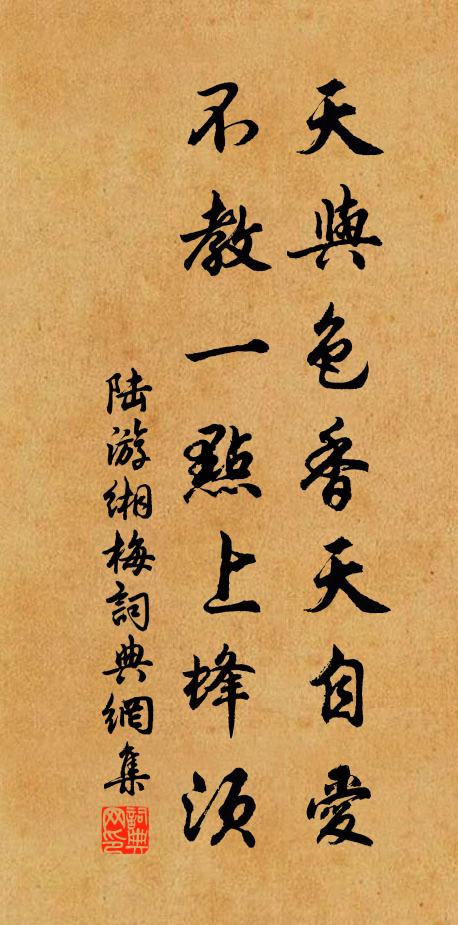 天與色香天自愛
不教一點上蜂須
陆游缃梅詞典網集
詞典网印